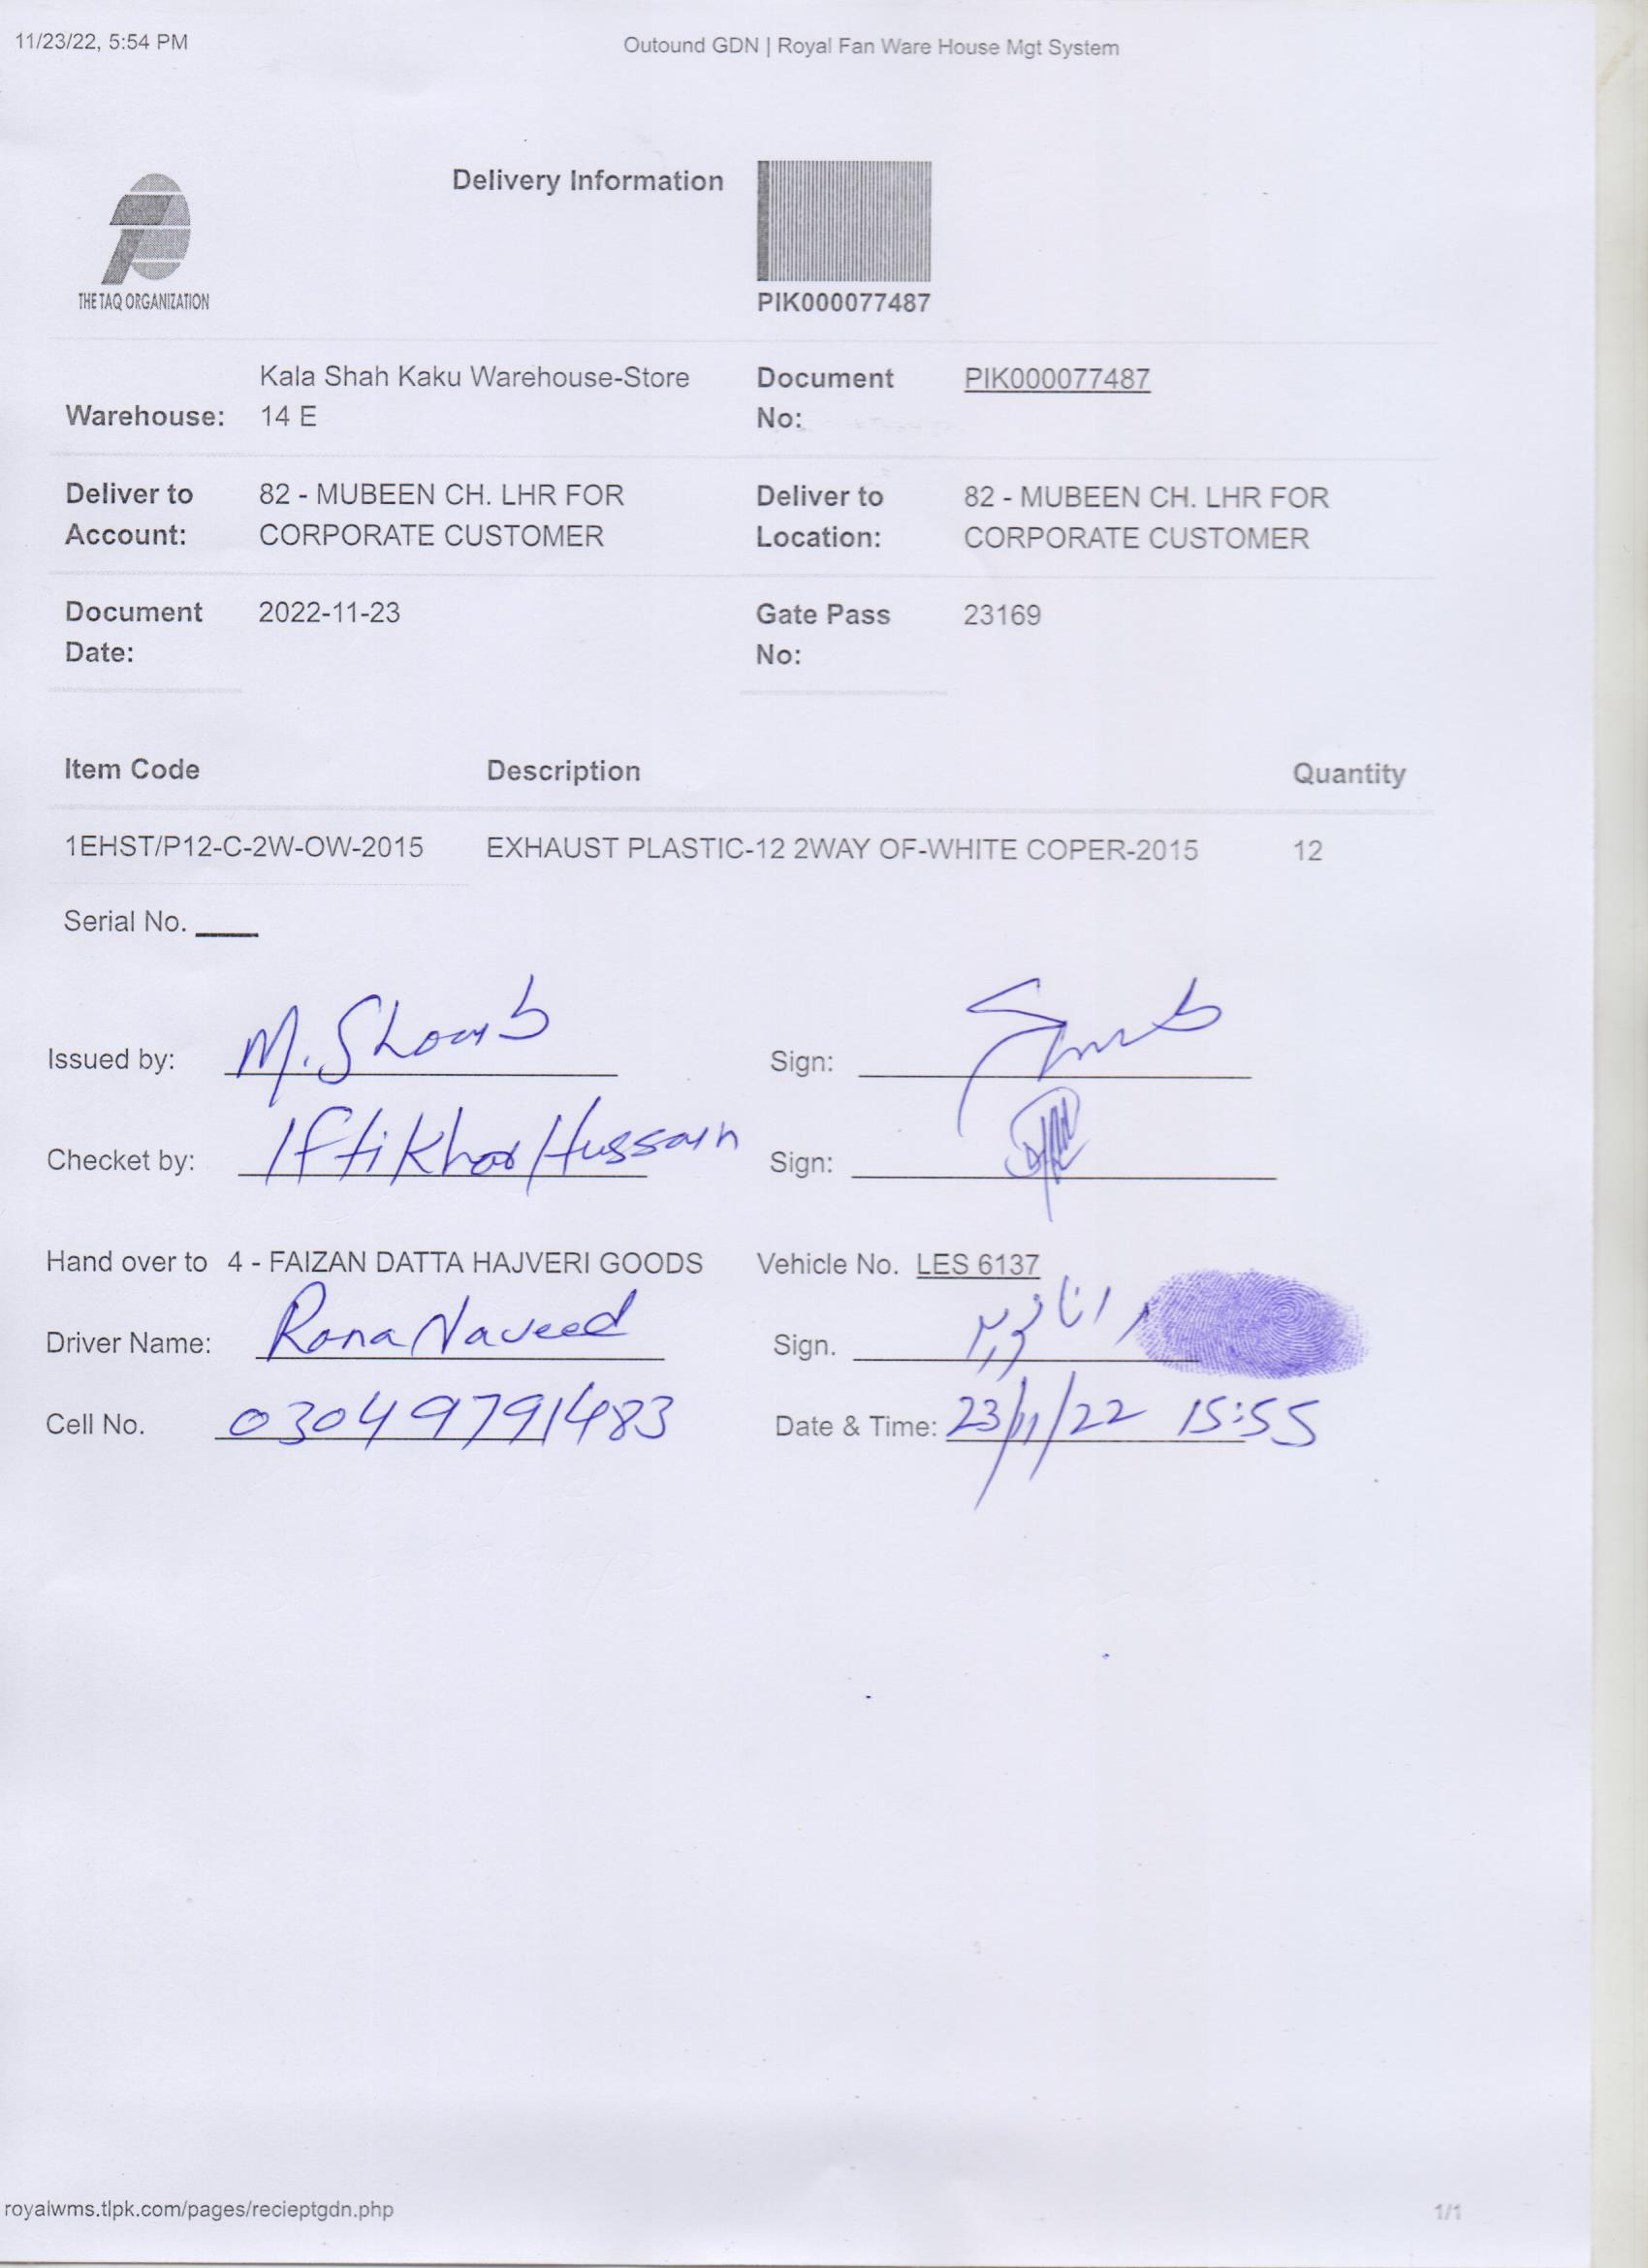 11/23/22, 5:54 PM
Outound GDN | Royal Fan Ware House Mgt System
Delivery Information
THE TAQ ORGANIZATION
PIK000077487
Kala Shah Kaku Warehouse-Store
Warehouse: 14 E
Document No: PIK000077487
Deliver to Account: 82 - MUBEEN CH. LHR FOR CORPORATE CUSTOMER
Deliver to Location: 82 - MUBEEN CH. LHR FOR CORPORATE CUSTOMER
Document Date: 2022-11-23
Gate Pass No: 23169
Item Code Description Quantity
1EHST/P12-C-2W-OW-2015 EXHAUST PLASTIC-12 2WAY OF-WHITE COPER-2015 12
Serial No.
Issued by: M. Shoaib Sign:
Checket by: Iftikhar Hussain Sign:
Hand over to 4 - FAIZAN DATTA HAJVERI GOODS Vehicle No. LES 6137
Driver Name: Rana Naveed Sign. رانا نوید
Cell No. 03049791483 Date & Time: 23/11/22 15:55
royalwms.tlpk.com/pages/recieptgdn.php
1/1